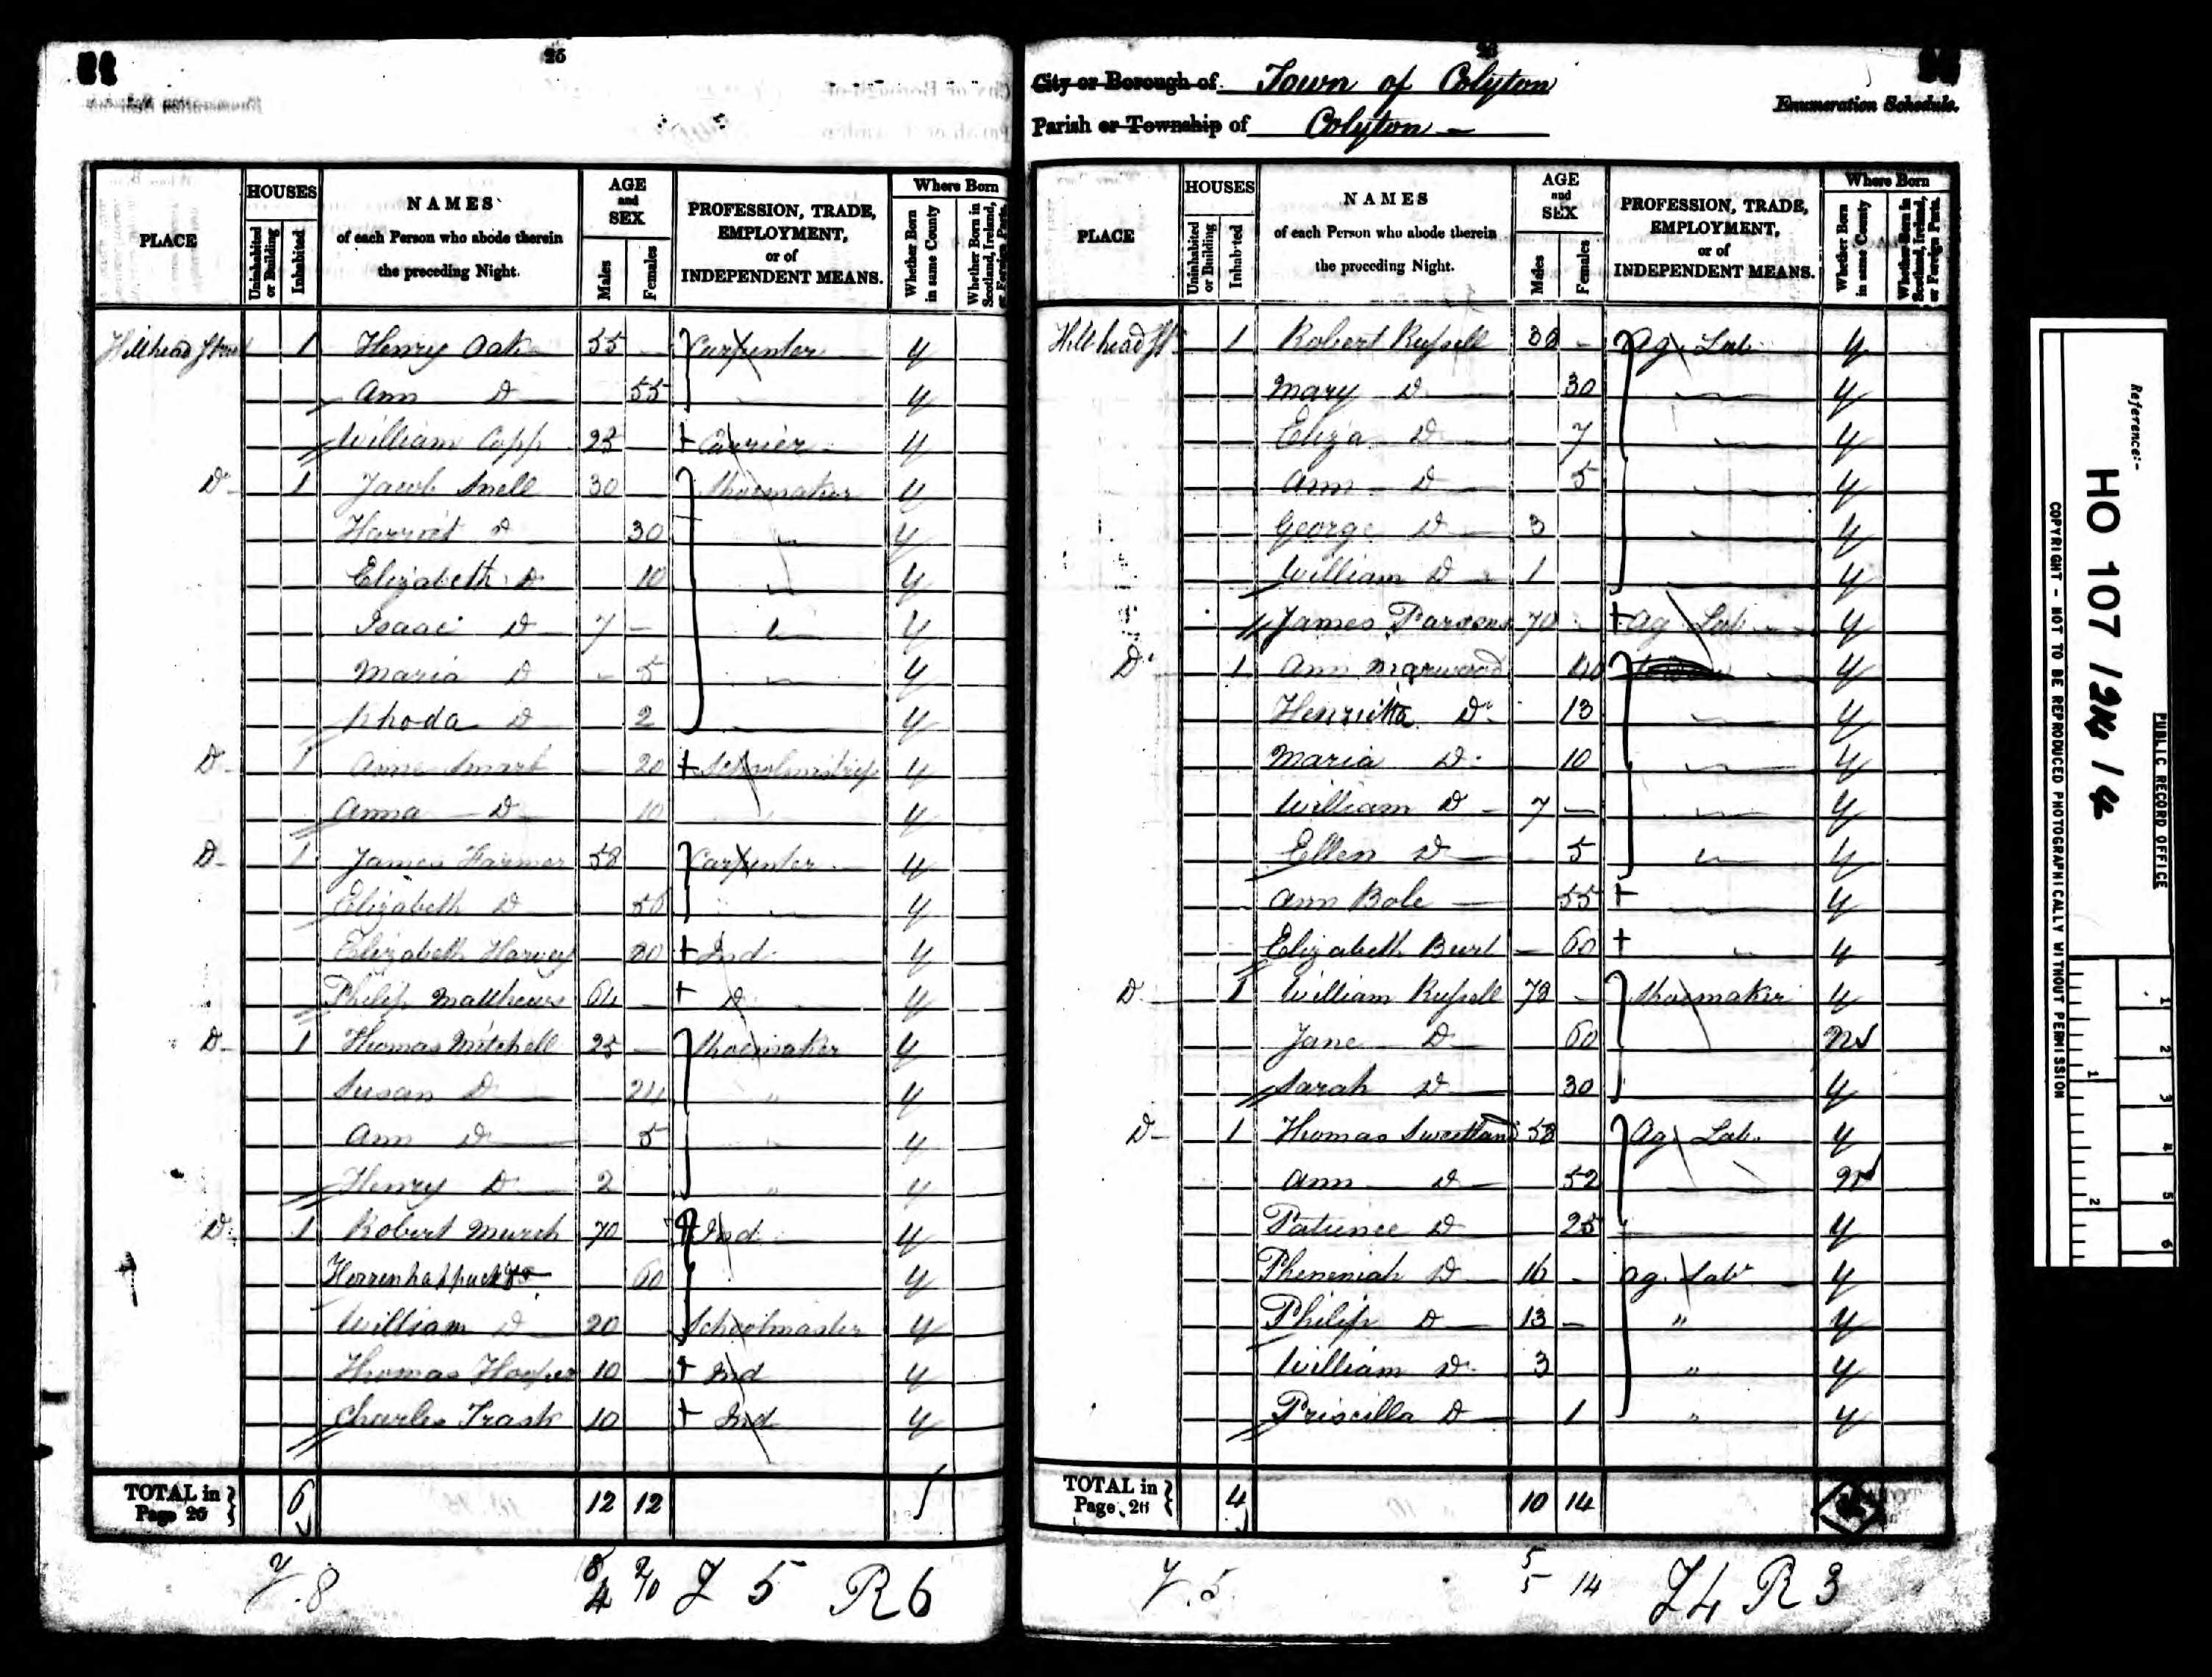 25
PLACE
HOUSES
Uninhabited or Building
Inhabited
NAMES
of each Person who abode therein
the preceding Night.
AGE
and
SEX
Males
Females
PROFESSION, TRADE,
EMPLOYMENT,
or of
INDEPENDENT MEANS.
Where Born
Whether Born in same County
Whether Born in Scotland, Ireland, or Foreign Parts.
Hillhead Street 1 Henry Oak 55 Carpenter y
Ann Do 55 y
William Capp 25 + Currier y
Do 1 Jacob Snell 30 Shoemaker y
Harriet Do 30 y
Elizabeth Do 10 y
Isaac Do 7 y
Maria Do 5 y
Rhoda Do 2 y
Do 1 Anne Smart 20 + Schoolmistress y
Anna Do 10 y
Do 1 James Farmer 58 Carpenter y
Elizabeth Do 50 y
Elizabeth Harvey 80 + Ind y
Philip Matthews 64 + Do y
Do 1 Thomas Mitchell 25 Shoemaker y
Susan Do 24 y
Ann Do 5 y
Henry Do 2 y
Do 1 Robert Murch 70 Ind y
Herrenhappuck Do 60 y
William Do 20 Schoolmaster y
Thomas Hooper 10 + Ind y
Charles Trask 10 + Ind y
TOTAL in Page 25 6 12 12
8 4 2/10 5 R 6
City or Borough of Town of Colyton
Enumeration Schedule.
Parish or Township of Colyton
PLACE
HOUSES
Uninhabited or Building
Inhabited
NAMES
of each Person who abode therein
the preceding Night.
AGE
and
SEX
Males
Females
PROFESSION, TRADE,
EMPLOYMENT,
or of
INDEPENDENT MEANS.
Where Born
Whether Born in same County
Whether Born in Scotland, Ireland, or Foreign Parts.
Hillhead St 1 Robert Russell 38 Ag Lab y
Mary Do 30 y
Eliza Do 7 y
Ann Do 5 y
George Do 3 y
William Do 1 y
James Parsons 70 + Ag Lab y
Do 1 Ann Marwood 40 y
Henrietta Do 13 y
Maria Do 10 y
William Do 7 y
Ellen Do 5 y
Ann Bole 55 + y
Elizabeth Burt 60 + y
Do 1 William Russell 78 Shoemaker y
Jane Do 60 N
Sarah Do 30 y
Do 1 Thomas Sweetland 58 Ag Lab. y
Ann Do 52 N
Patience Do 25 y
Pheneniah Do 16 Ag. Lab y
Philip Do 13 " y
William Do 3 " y
Priscilla Do 1 " y
TOTAL in Page 26 4 10 14
5 5 14 4 R 3
Reference:-
HO 107 / 214 / 4
PUBLIC RECORD OFFICE
COPYRIGHT - NOT TO BE REPRODUCED PHOTOGRAPHICALLY WITHOUT PERMISSION
1 2 3 4 5 6
1 2